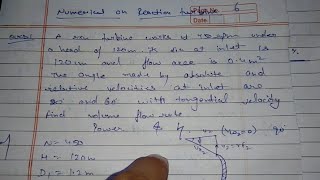 Numerical on Reaction turbine
Page 6
Date
A turbine works at 450 rpm under
a head of 120m. Its dia at inlet is
120 cm and flow area is 0.4 m²
The angle made by absolute and
relative velocities at inlet are
20° and 60° with tangential velocity
find volume flow rate
Power
N = 450
H = 120m
D₁ = 1.2m